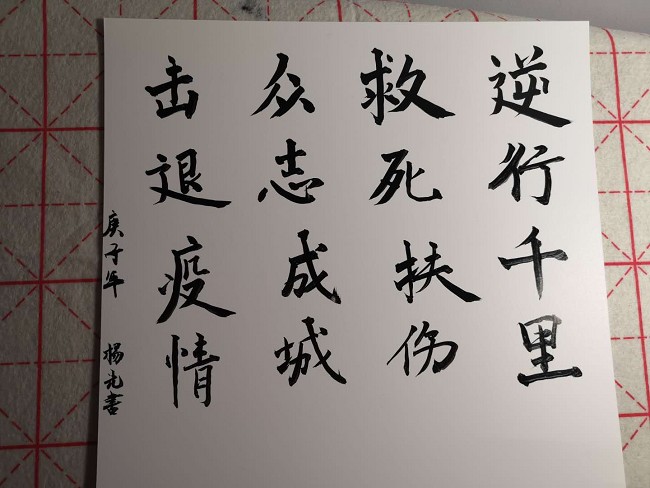 逆行千里
救死扶伤
众志成城
击退疫情
庚子年 杨光書